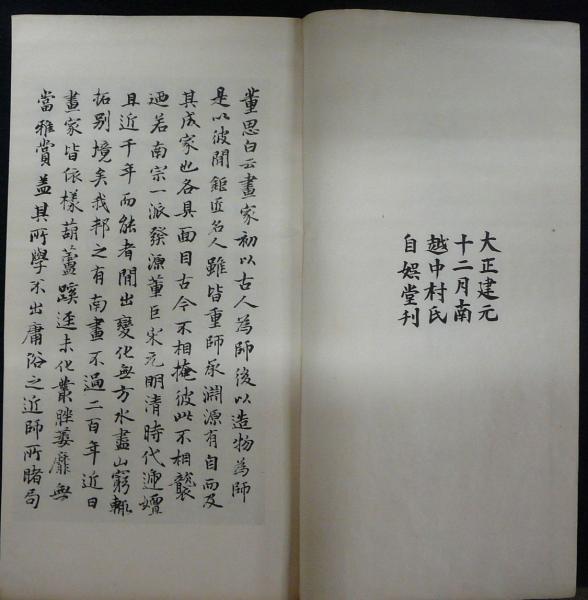 大正建元
十二月南
越中村氏
自娯堂刊
董思白云畫家初以古人為師後以造物為師
是以彼間鉅匠名人雖皆重師承淵源有自而及
其成家也各具面目古今不相掩彼此不相襲
迺若南宗一派發源董巨宋元明清時代遞嬗
且近千年而能者間出變化無方水盡山窮輒
拓別境矣我邦之有南畫不過二百年近日
畫家皆依樣葫蘆蹊逕未化叢脞萎靡無
當雅賞盖其所學不出庸俗之近師所睹局